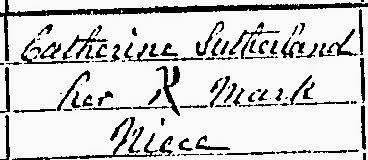 Catherine Sutherland
her X Mark
Niece